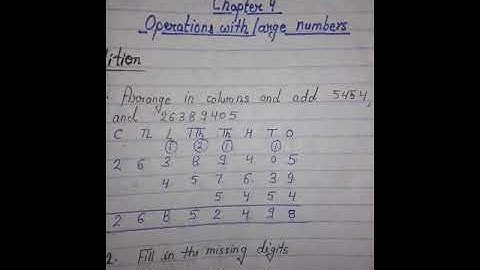 Chapter 4
Operations with large numbers
dition
Arrange in columns and add 5454,
and 26389405
C TL L TTh Th H T O
1 2 1 1
2 6 3 8 9 4 0 5
4 5 7 6 3 9
5 4 5 4
2 6 8 5 2 4 9 8
2. Fill in the missing digits